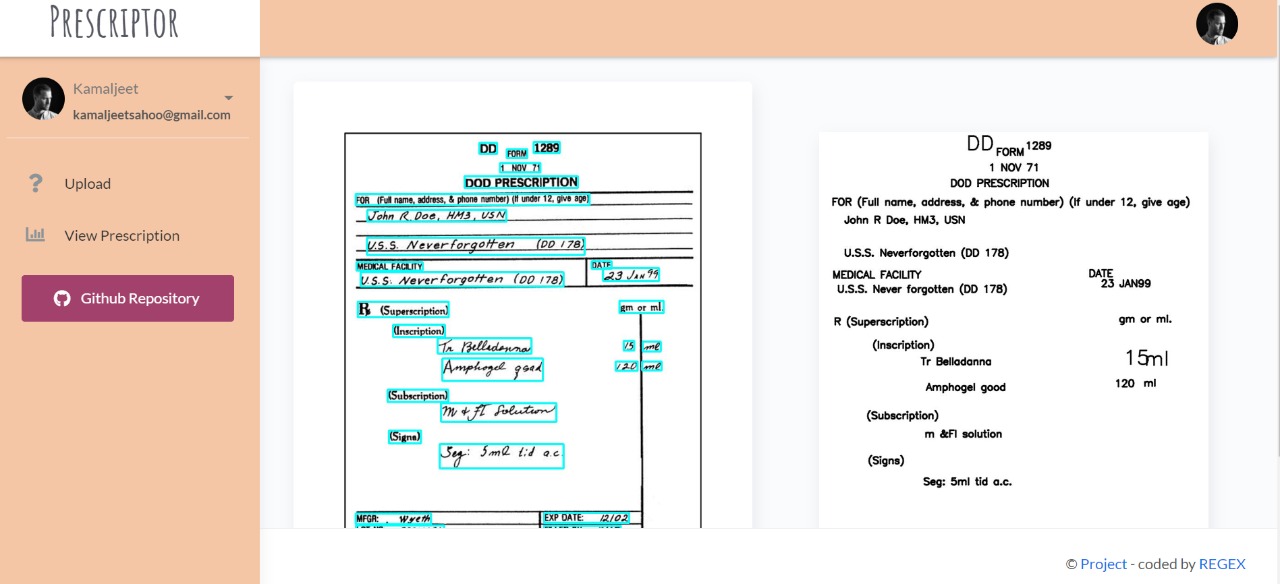 PRESCRIPTOR
Kamaljeet
kamaljeetsahoo@gmail.com
Upload
View Prescription
Github Repository
DD FORM 1289
1 NOV 71
DOD PRESCRIPTION
FOR (Full name, address, & phone number) (If under 12, give age)
John R. Doe, HM3, USN
U.S.S. Neverforgotten (DD 178)
MEDICAL FACILITY
U.S.S. Neverforgotten (DD 178)
DATE
23 Jan 99
R (Superscription)
gm or ml.
(Inscription)
Tr Belladonna 15 ml
Amphogel qsad 120 ml
(Subscription)
M & Ft Solution
(Signa)
Sig: 5ml tid a.c.
MFGR: Wyeth
EXP DATE: 12/02
DD FORM 1289
1 NOV 71
DOD PRESCRIPTION
FOR (Full name, address, & phone number) (If under 12, give age)
John R Doe, HM3, USN
U.S.S. Neverforgotten (DD 178)
MEDICAL FACILITY
U.S.S. Never forgotten (DD 178)
DATE
23 JAN99
R (Superscription)
gm or ml.
(Inscription)
Tr Belladanna
15ml
Amphogel good
120 ml
(Subscription)
m &Fl solution
(Signs)
Seg: 5ml tid a.c.
© Project - coded by REGEX